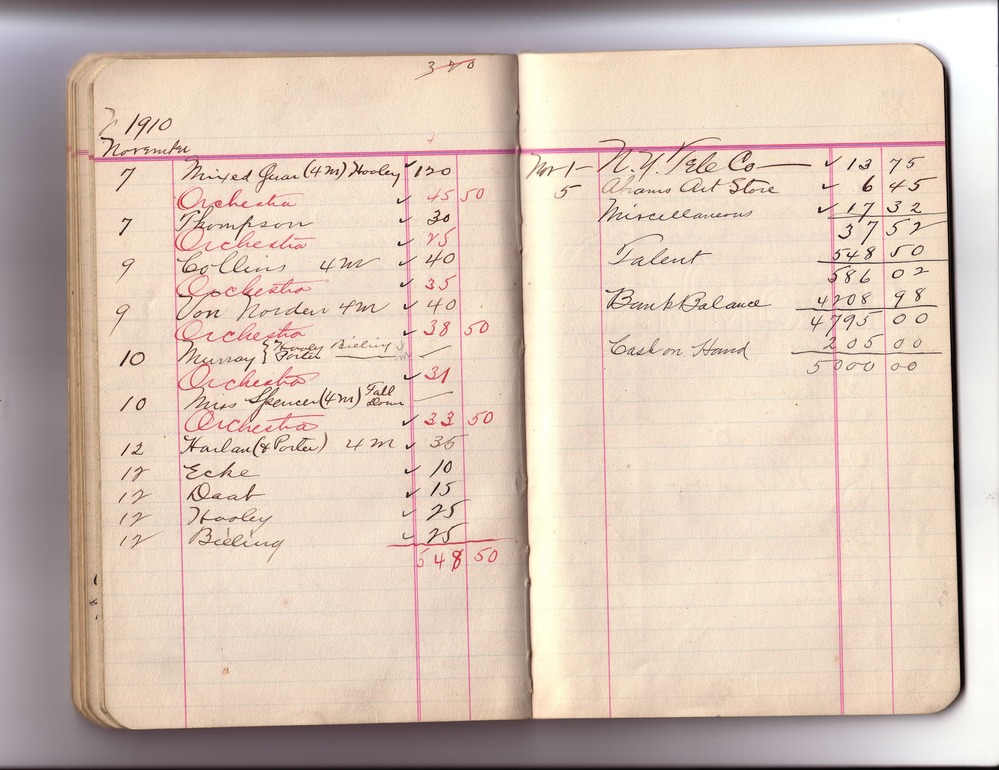 320
1910
November
7 Mixed Quar (4M) Hooley ✓ 120
Orchestra ✓ 45 50
7 Thompson ✓ 30
Orchestra ✓ 25
9 Collins 4M ✓ 40
Orchestra ✓ 35
9 Von Norden 4M ✓ 40
Orchestra ✓ 38 50
10 Murray { Hooly Bieling
Porter —
Orchestra ✓ 31
10 Miss Spencer (4M) Fall Down —
Orchestra ✓ 33 50
12 Harlan (& Porter) 4M ✓ 35
12 Ecke ✓ 10
12 Daab ✓ 15
12 Hooley ✓ 25
12 Bieling ✓ 25
548 50
Nov 1— N.Y. Tele Co — ✓ 13 75
5 Abrams Art Store ✓ 6 45
Miscellaneous ✓ 17 32
37 52
Talent 548 50
586 02
Bank Balance 4208 98
4795 00
Cash on Hand 205 00
5000 00